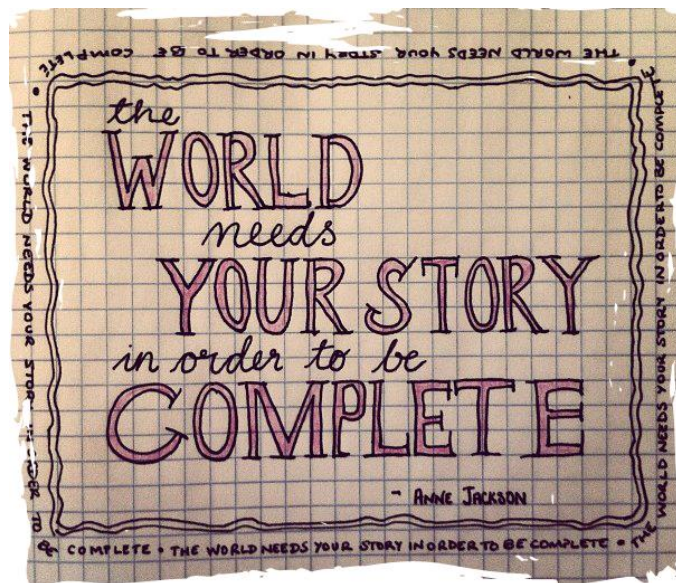 the
WORLD
needs
YOUR STORY
in order to be
COMPLETE
- ANNE JACKSON
THE WORLD NEEDS YOUR STORY IN ORDER TO BE COMPLETE •
THE WORLD NEEDS YOUR TO
BE COMPLETE • THE WORLD NEEDS YOUR STORY IN ORDER TO BE COMPLETE •
THE WORLD NEEDS YOUR STORY IN ORDER TO BE COMPLETE •